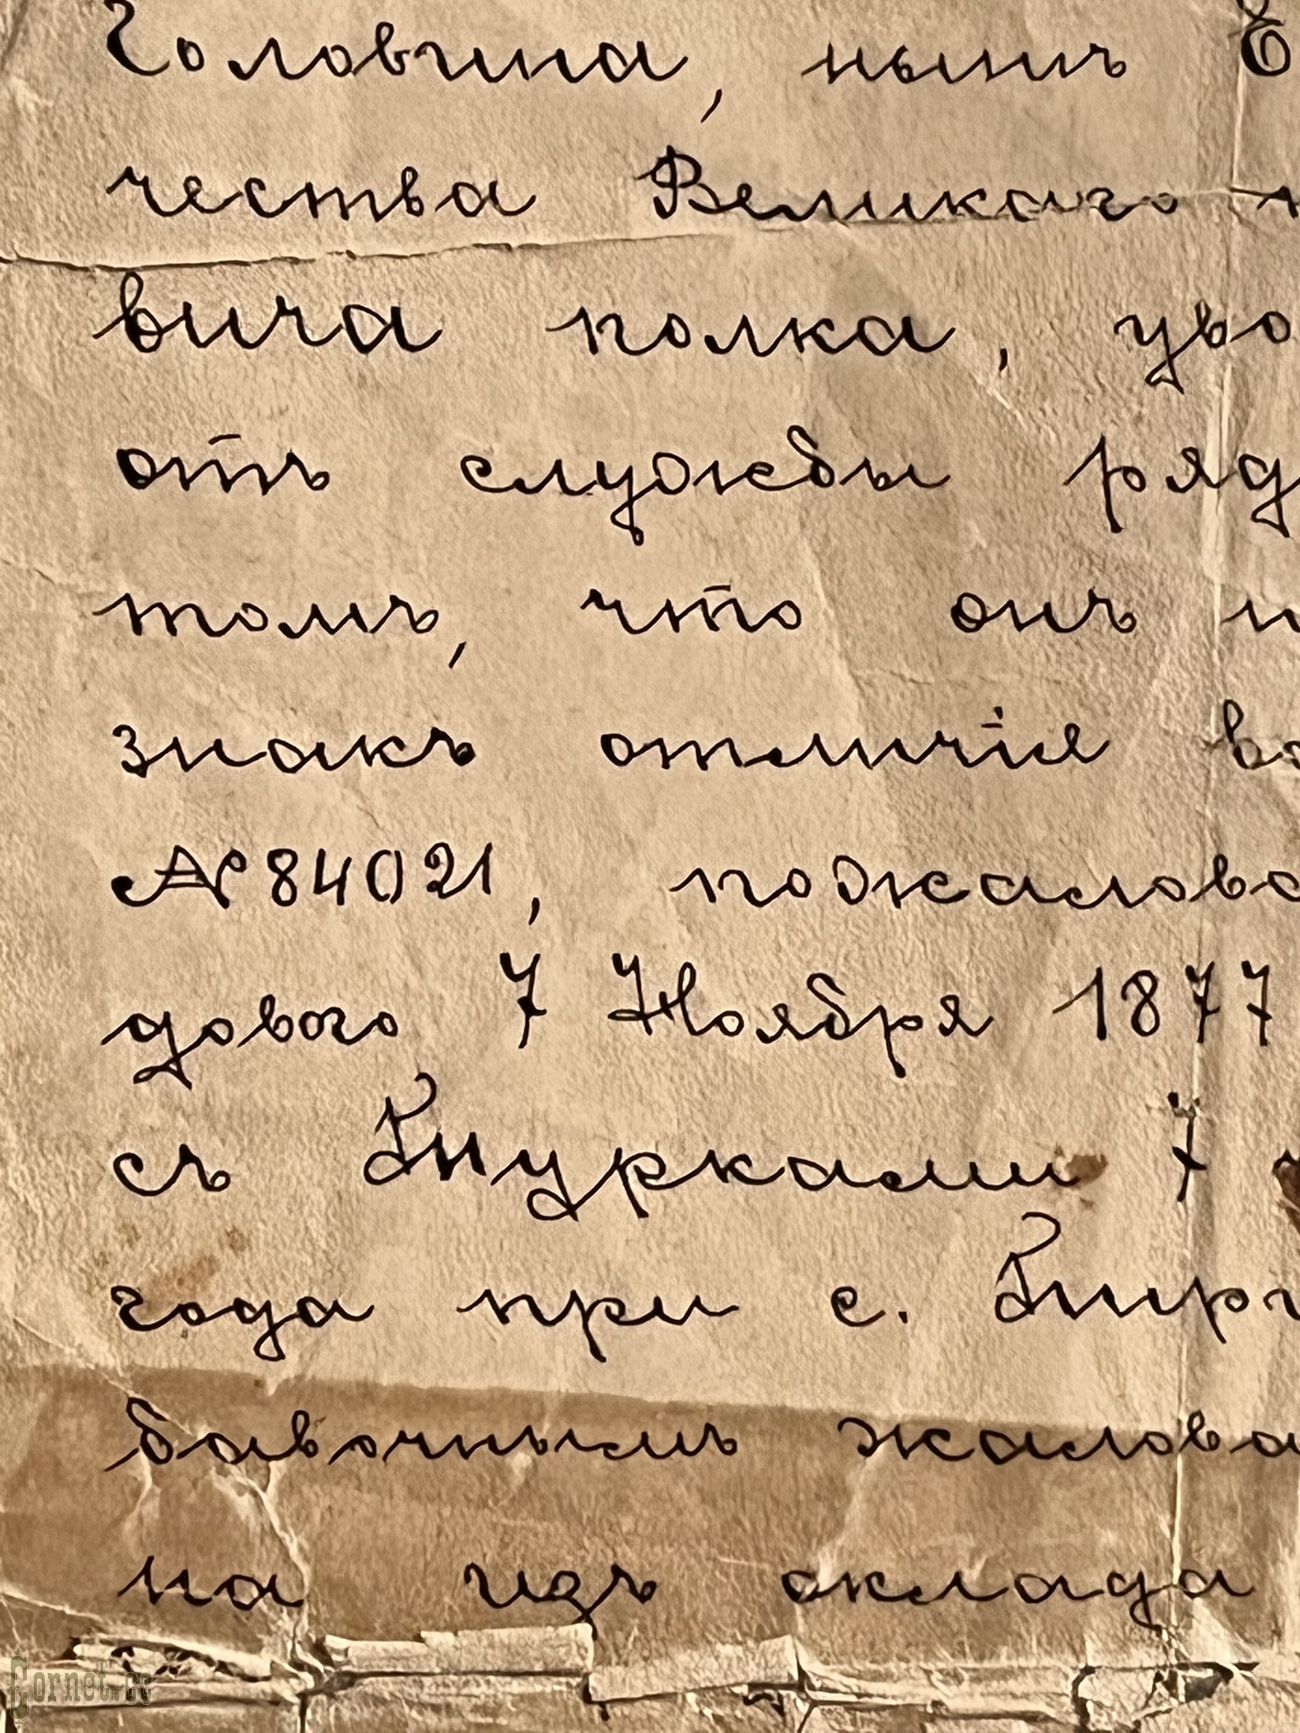 Головина, нынѣ Е
чества Великаго к
вича полка, уво
отъ службы ряд
томъ, что онъ и
знакъ отличія во
№ 84021, пожалова
дового 7 Ноября 1877
съ Турками 7
года при с. Тирг
бавочнымъ жалова
на изъ оклада
Cornet.ee